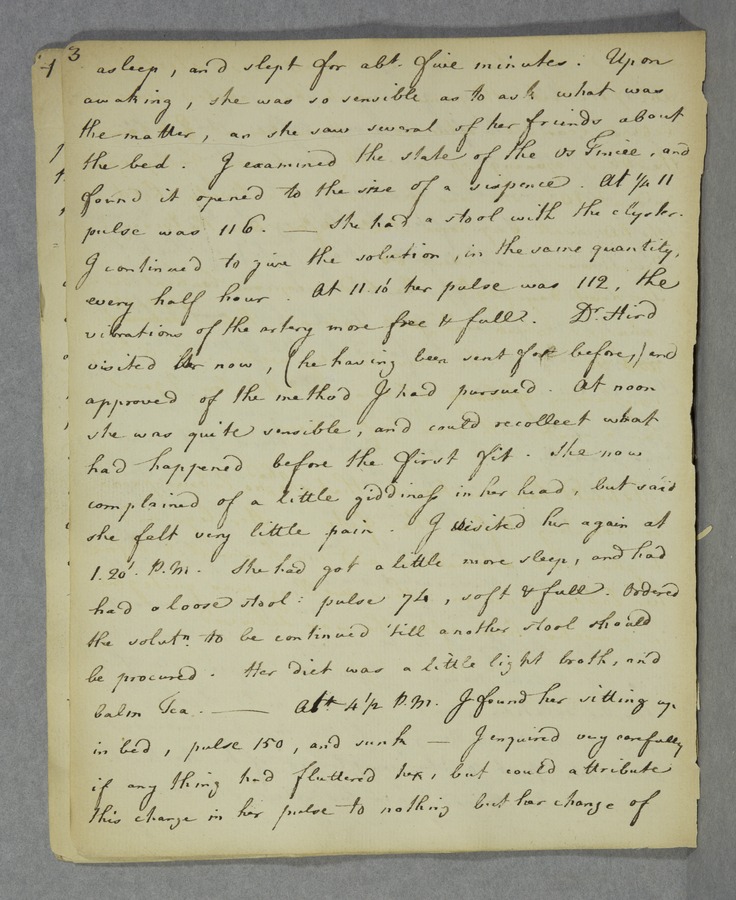 3
asleep, and slept for abt. five minutes. Upon
awaking, she was so sensible as to ask what was
the matter, as she saw several of her friends about
the bed. I examined the state of the Os Tincæ, and
found it opened to the size of a sixpence. At 1/4 11
pulse was 116. — She had a stool with the clyster.
I continued to give the solution, in the same quantity,
every half hour. At 11.10' her pulse was 112, the
vibrations of the artery more free & full. Dr. Hird
visited her now, (he having been sent for before,) and
approved of the method I had pursued. At noon
she was quite sensible, and could recollect what
had happened before the first fit. She now
complained of a little giddiness in her head, but said
she felt very little pain. I visited her again at
1.20'. P.M. She had got a little more sleep, and had
had a loose stool: pulse 74, soft & full. Ordered
the solutn. to be continued 'till another stool should
be procured. Her diet was a little light broth, and
balm Tea. — Abt 4 1/2 P.M. I found her sitting up
in bed, pulse 150, and sunk — I enquired very carefully
if any thing had fluttered her, but could attribute
this change in her pulse to nothing but her change of